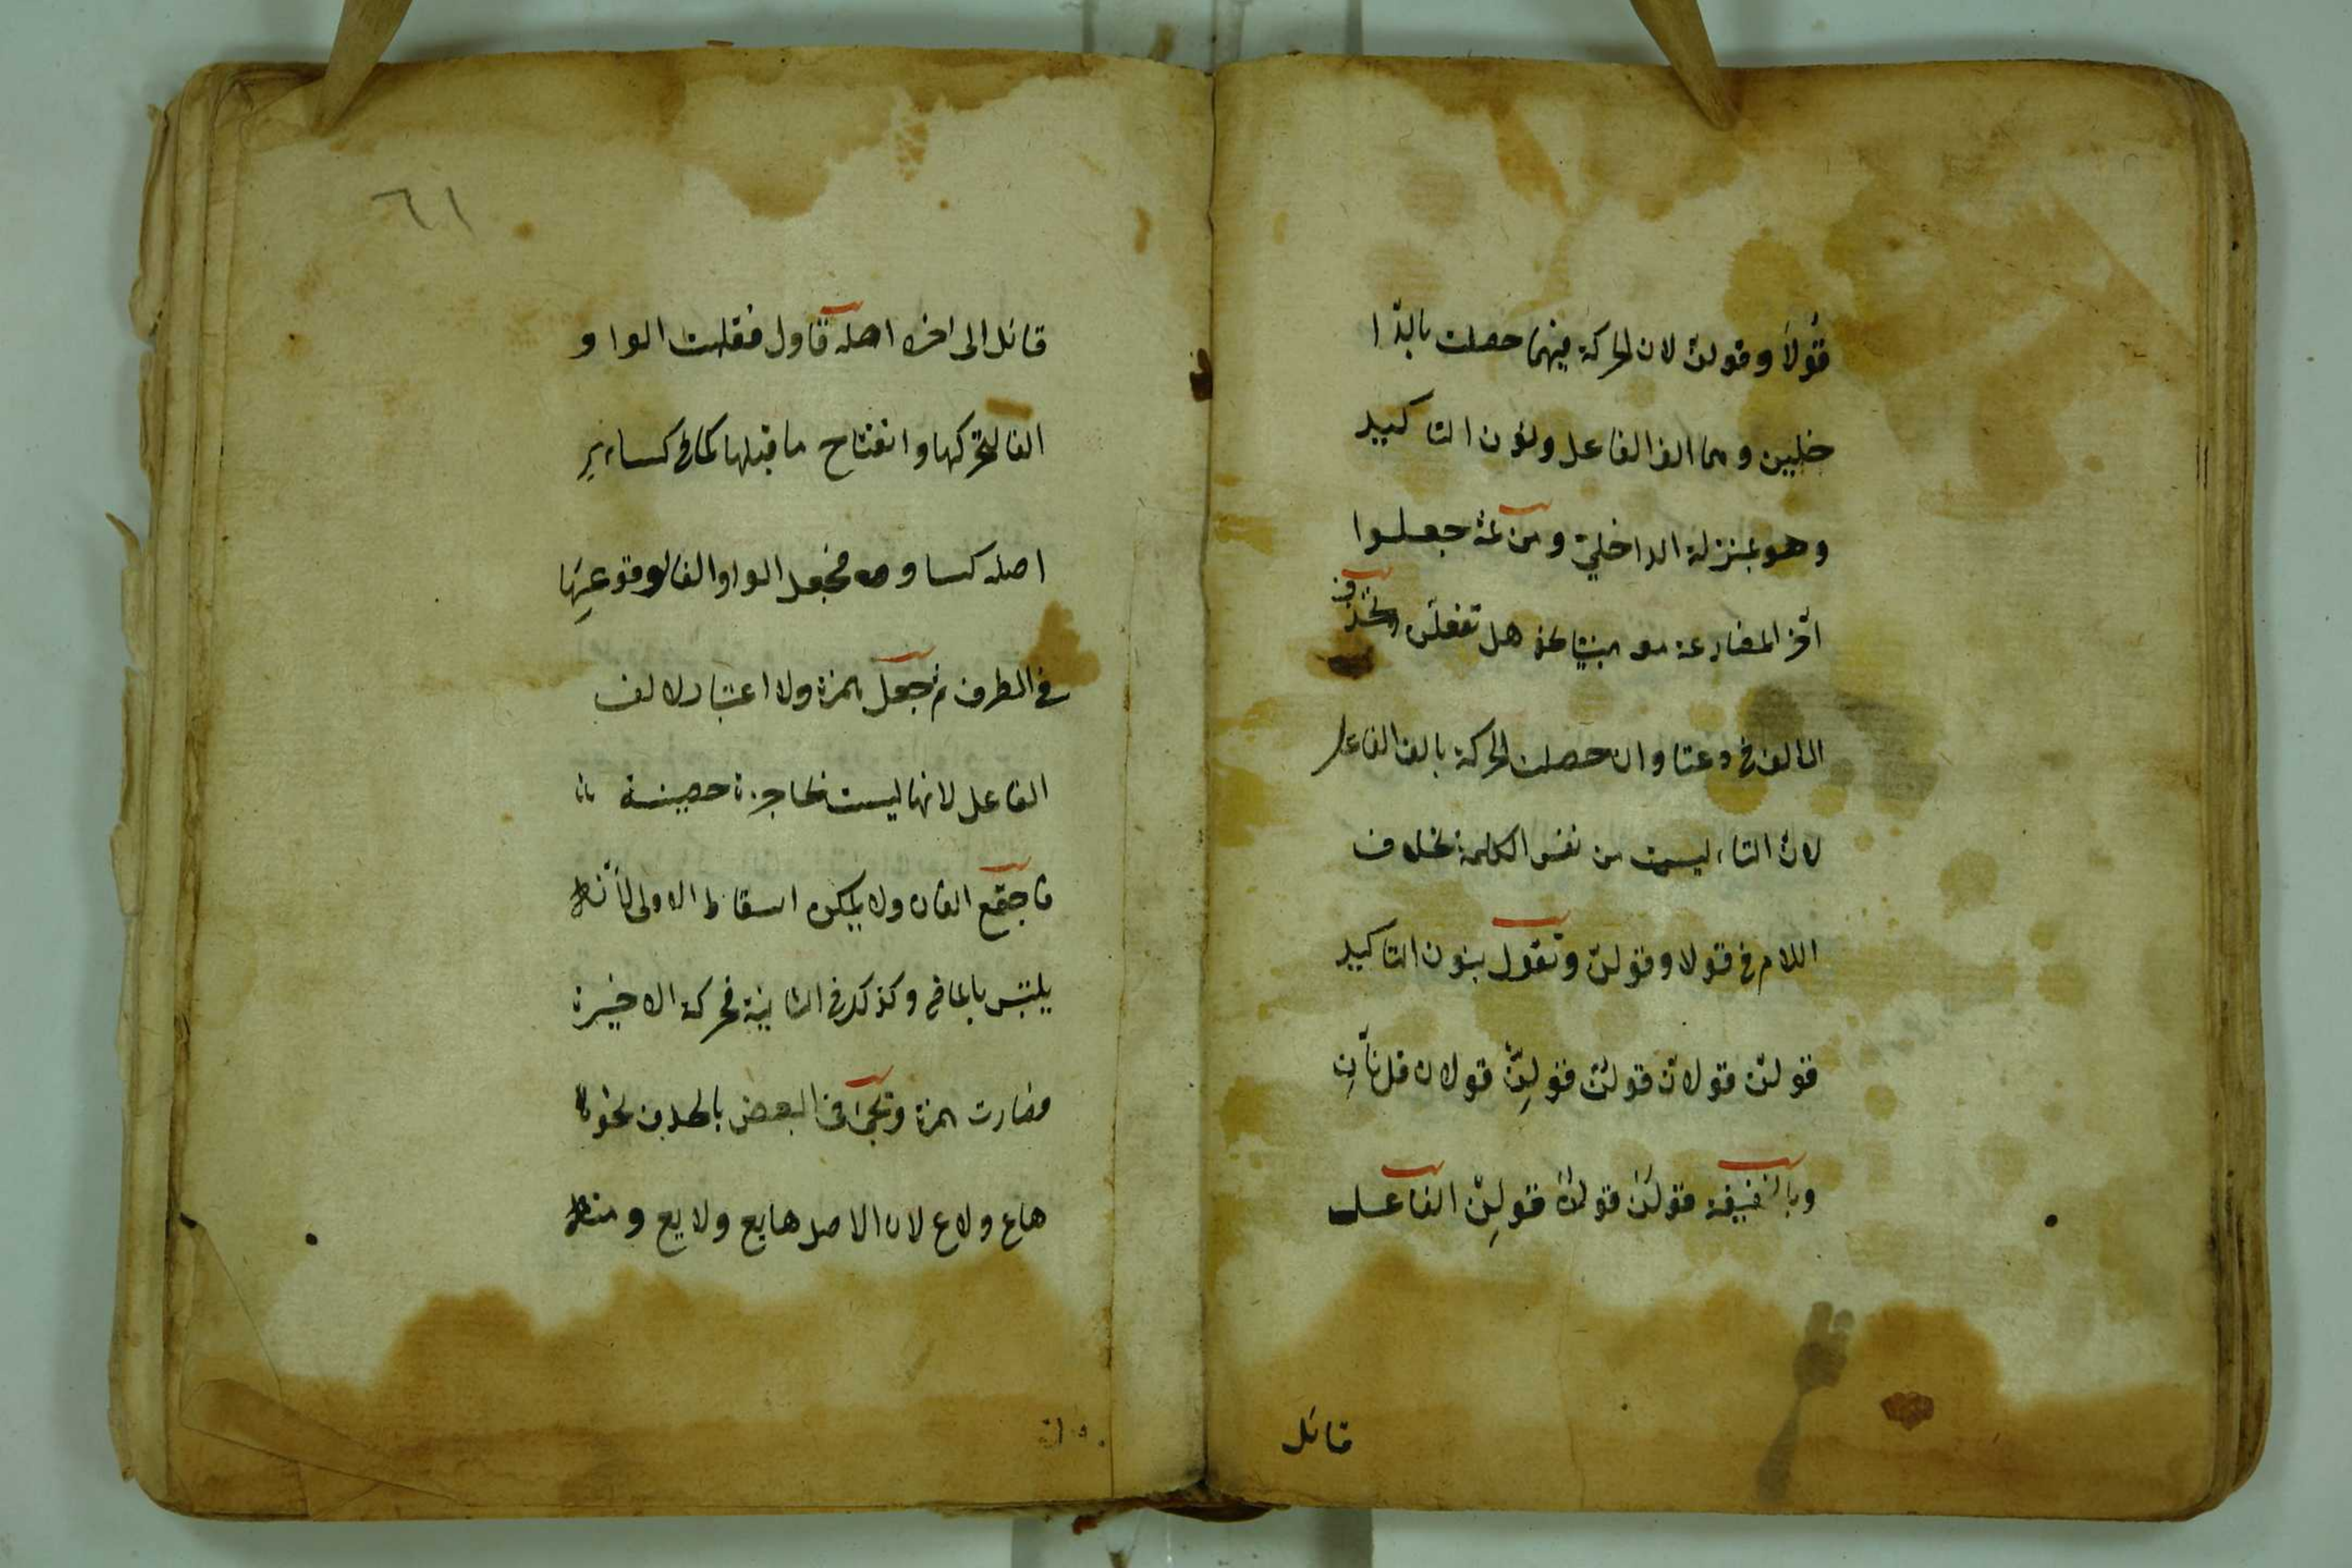 قولا وقولن لان الحركة فيهما حصلت بالدا
خليين وهما الف الفاعل ونون التاكيد
وهو بمنزلة الداخلي ومن ثمة جعلوا
آخر المضارعة معه مبنيا نحو هل تفعلن وتحذف
الالف في دعتا وان حصلت الحركة بالف الفاعل
لان التاء ليست من نفس الكلمة بخلاف
اللام في قولا وقولن وتقول بنون التاكيد
قولن قولان قولن قولن قولان قلنان
وبالخفيفة قولن قولن قولن الفاعل
قائل
٦١
قائل الى اخره اصله قاول فقلبت الواو
الفا لتحركها وانفتاح ما قبلها كما في كساء
اصله كساو فجعل الواو الفا لوقوعها
في الطرف ثم جعل همزة ولا اعتبار لالف
الفاعل لانها ليست بحاجزة حصينة
فاجتمع الفان ولا يمكن اسقاط الاولى لانه
يلتبس بالماضي وكذلك في الثانية فحركة الاخيرة
فصارت همزة وتجئ في البعض بالحذف نحو
هاع ولاع لان الاصل هايع ولايع ومنه